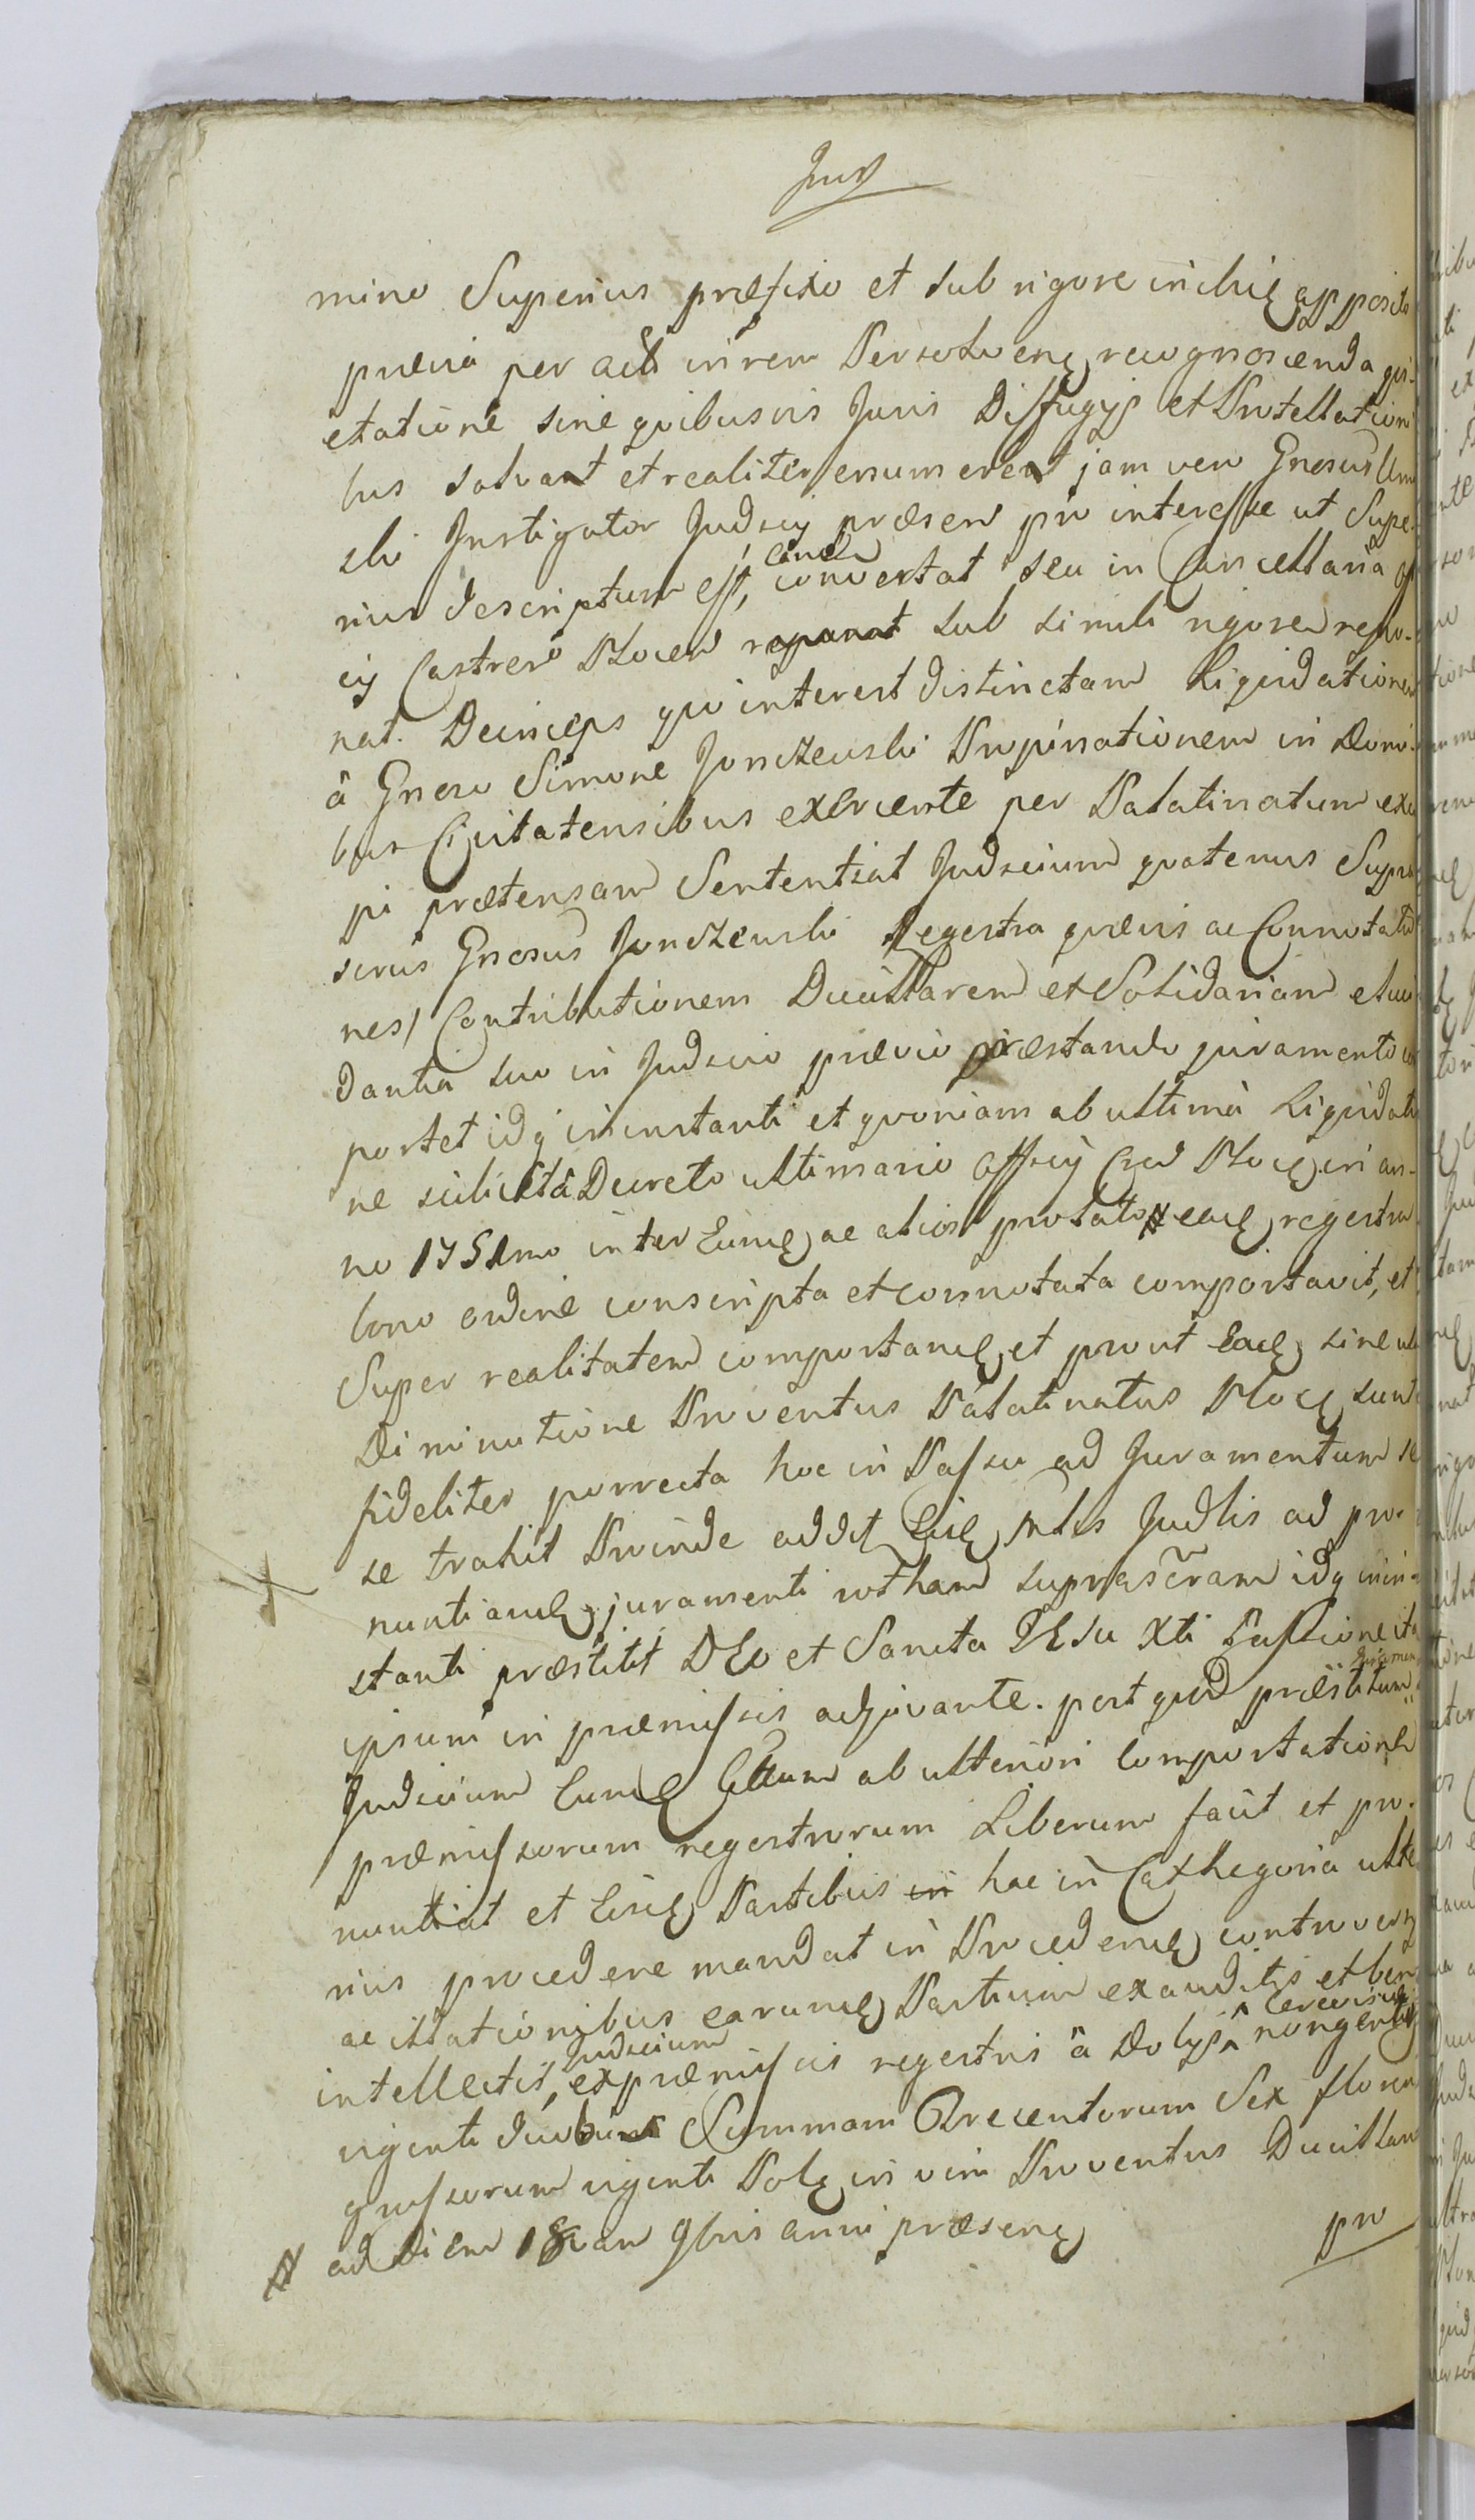 mino Superius præfixo et sub rigore inibiq apposito
prævia per act in rem Persolvenq recognoscenda qvi-
etatione sine qvibusvis Juris Diffugijs et Protellationi
bus solvant et realiter enumerent jam vero Gnosus
ski Instigator Judicij præsen pro interesse ut Supe-
rius descriptum est, Eand convertat seu in Cancellaria
cij Castren Plocen reponat sub simili rigore repo-
nat. Deinceps qvo interest distinctam Liqvidationem
à Gnoso Simone Jonczewski Propinationem in Domi-
bus Civitatensibus exercente per Palatinatum exci
pi prætensam Sententiat Judicium qvatenus Supra
scrius Gnosus Jonczewski Regestra qvævis ac Connotatio
nes Contributionem Ducillarem et Solidariam eluci
dantia suo in Judicio prævio præstando juramento com
portet idq in instanti et qvoniam ab ultima Liqvidatio
ne scilicet à Decreto ultimario Officij Cas Plocq in an-
no 1751mo inter Eumq ac alios prolato # eaq regestra
bono ordine conscripta et connotata comportavit, et
Super realitatem comportanq et prout Eaq sine ulla
Diminutione Proventus Palatinatus Plocq sunt
fideliter porrecta hoc in Passu ad Juramentum se
se trahit Proinde addit Eiq Mls Judlis ad pro-
nuntianq juramenti rotham suprascram idq in in-
stanti præstitit DEo et Sancta JEsu Xti Passione ita
ipsum in præmissis adjuvante. post qvod præstitum
Judicium Eumq ab ulteriori Comportatione
præmissorum regestrorum Liberum facit et pro-
nuntiat et Eisq Partibus in hac in Cathegoria ulte
rius procedere mandat in Procedenq controversijs
ac illationibus earumq Partium exauditis et bene
intellectis, Judicium ex præmissis regestris à Dolijs Cerevisiæ nongentis
viginti duobus Summam Trecentorum Sex floren
grossorum viginti Polq in vim Proventus Ducillaris
# ad Diem 18vam 9bris anni præsenq
pro